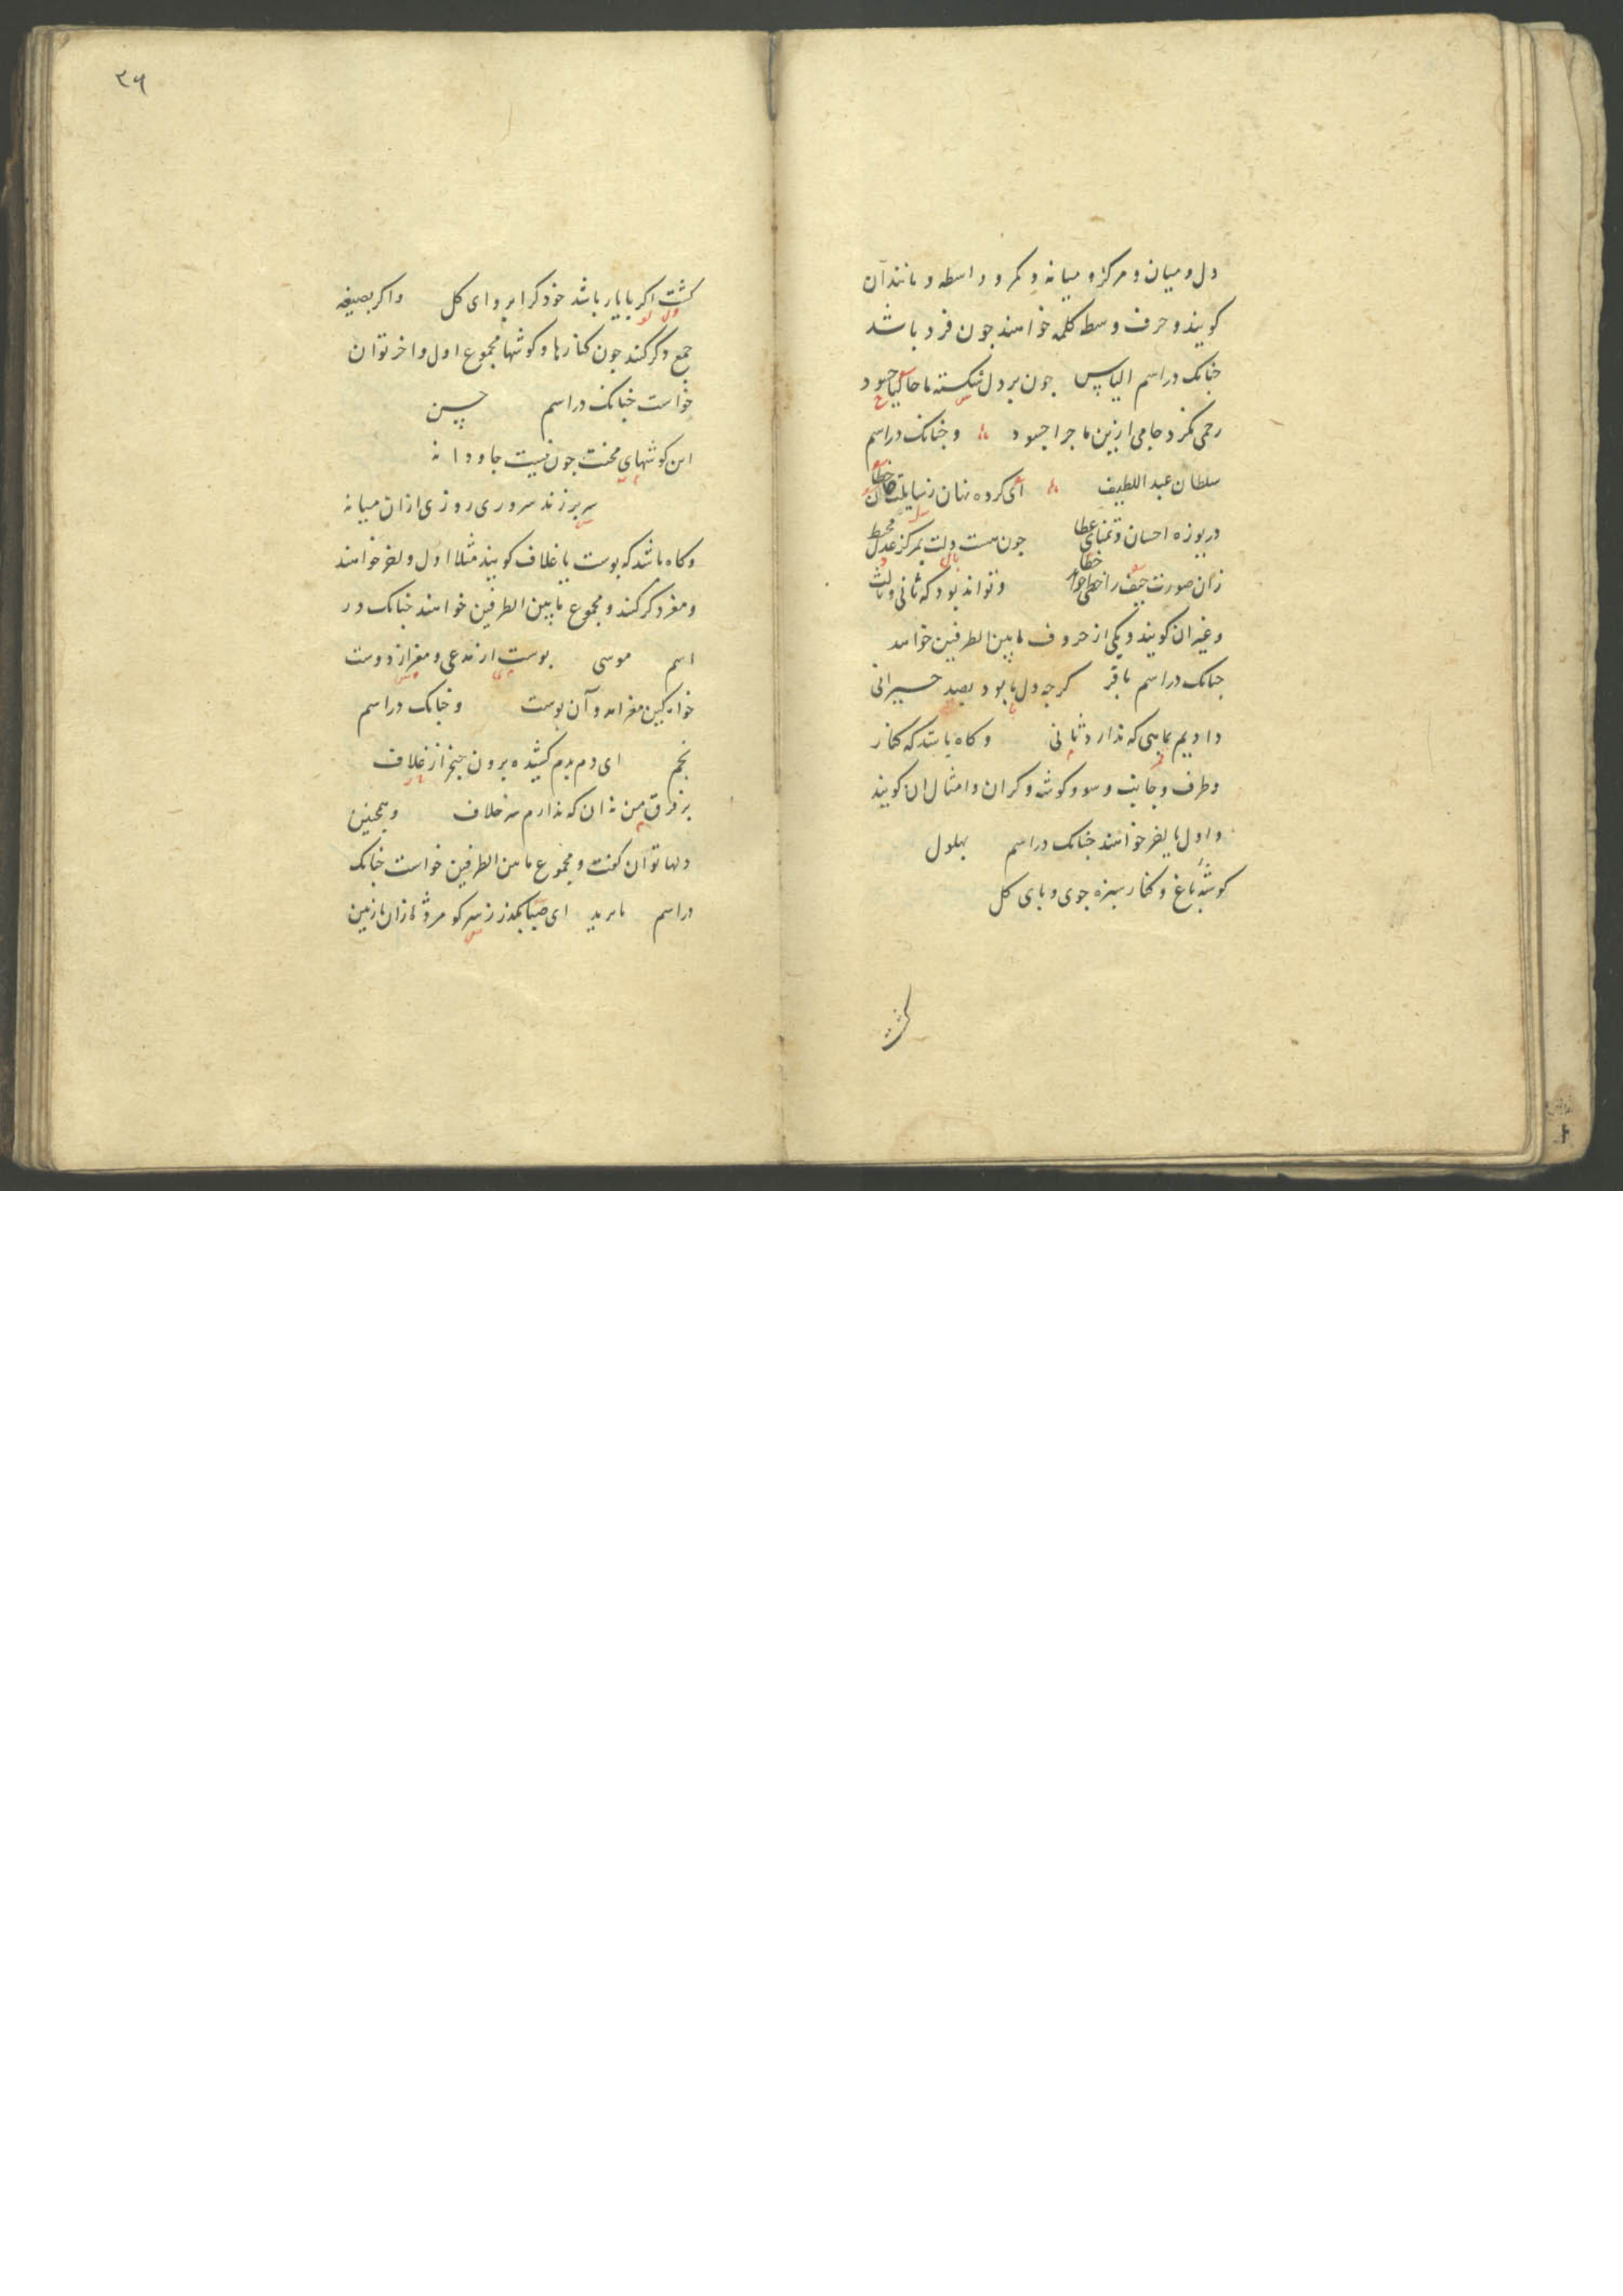 دل و میان و مرکز و میانه و کمر و واسطه و مانند آن
کویند و حرف وسط کلمه خواهند جون فرد باشد
جنانک در اسم الیاس جون بر دل شکسته ما
رحمی نکرد جامی ازین ماجرا جسود و جنانک در اسم
سلطان عبد اللطیف ای کرده نهان
دریوزه احسان و تمنای عطا جون هست دلت بمرکز عدل محیط
زان صورت حیف را و تواند بود که ثانی و ثالث
و غیر ان کویند و یکی از حروف مابین الطرفین خواهند
جنانک در اسم باقر کرجه دل بود بصد حیرانی
دادیم بماهی که ندارد ثانی و کاه باشد که کنار
و طرف و جانب و سو و کوشه و کران و امثال ان کویند
و اول یا اخر خواهند جنانک در اسم بهلول
کوشه باغ و کنار سبزه جوی و پای کل
کشت
۲۶
کشت اکر با یار باشد خود کرا پروای کل و اکر بصیغه
جمع ذکر کنند جون کنارها و کوشها مجموع اول و اخر توان
خواست جنانک در اسم حسن
این کوشهای محنت جون نیست جاودانه
سر بر زند سروری روزی ازان میانه
و کاه باشد که پوست یا غلاف کویند مثلا اول و اخر خواهند
و مغز ذکر کنند و مجموع مابین الطرفین خواهند جنانک در
اسم موسی پوست از مدعی و مغز از دوست
خواه کین مغز امد و آن پوست و جنانک در اسم
نجم ای دم بدم کشیده برون خنجر از غلاف
بر فرق من نه ان که ندارم سر خلاف و همجنین
دلها توان کفت و مجموع مابین الطرفین خواست جنانک
در اسم بایزید ای صبا بکذر ز سر کو